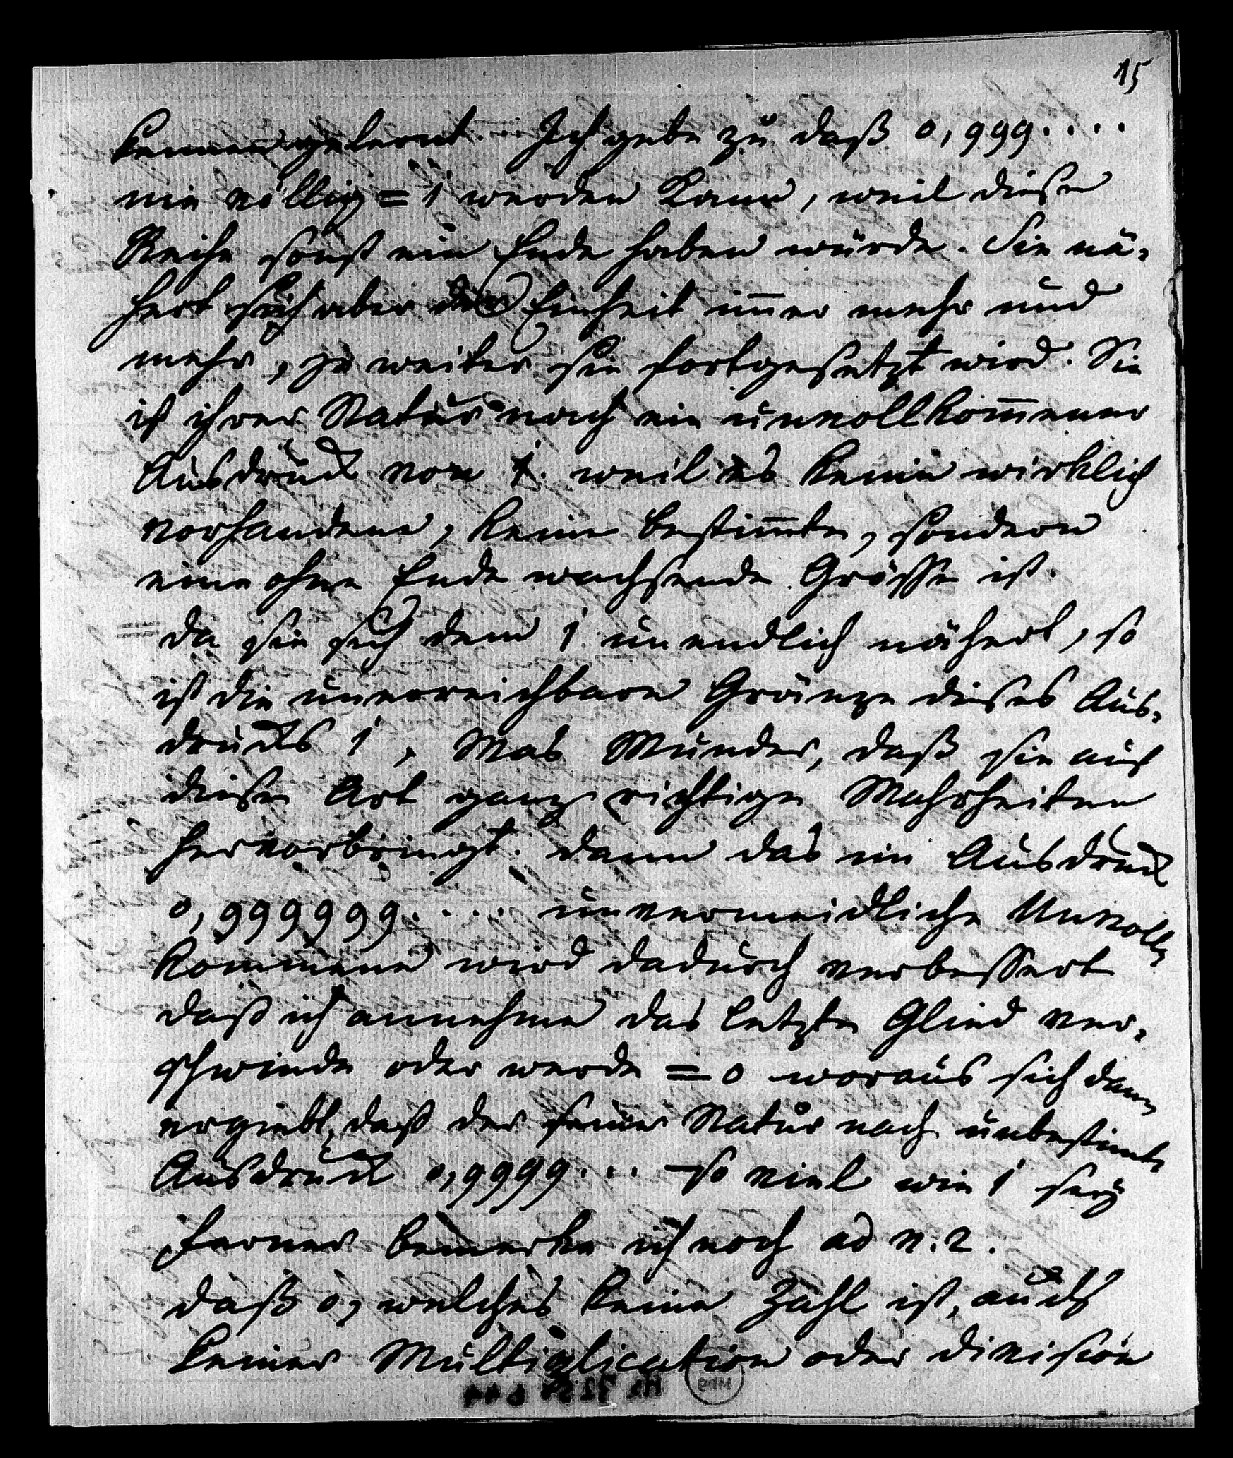 15
kennen gelernt. Ich gebe zu daß 0,999....
nie völlig = 1 werden kann, weil diese
Reihe sonst ein Ende haben würde. Sie nä-
hert sich aber der Einheit im̅er mehr und
mehr, je weiter sie fortgesetzt wird. Sie
ist ihrer Natur nach ein unvollkom̅ener
Ausdruck von 1. weil es keine wirklich
vorhandene, keine bestim̅te, sondern
eine ohne Ende wachsende Grösse ist.
Da sie sich dem 1 unendlich nähert, so
ist die unerreichbare Gränze dieses Aus-
drucks 1, Was Wunder, daß sie auf
diese Art ganz richtige Wahrheiten
hervorbringt. denn das im Ausdruck
0,999999..... unvermeidliche Unvoll-
kommene wird dadurch verbessert
daß ich annehme das letzte Glied ver-
schwinde oder werde = 0 woraus sich dann
ergiebt, daß der seiner Natur nach unbestimte
Ausdruck 0,9999... so viel wie 1 sey
ferner bemerke ich noch ad n. 2.
daß 0, welches keine Zahl ist, auch
keiner Multiplication oder division